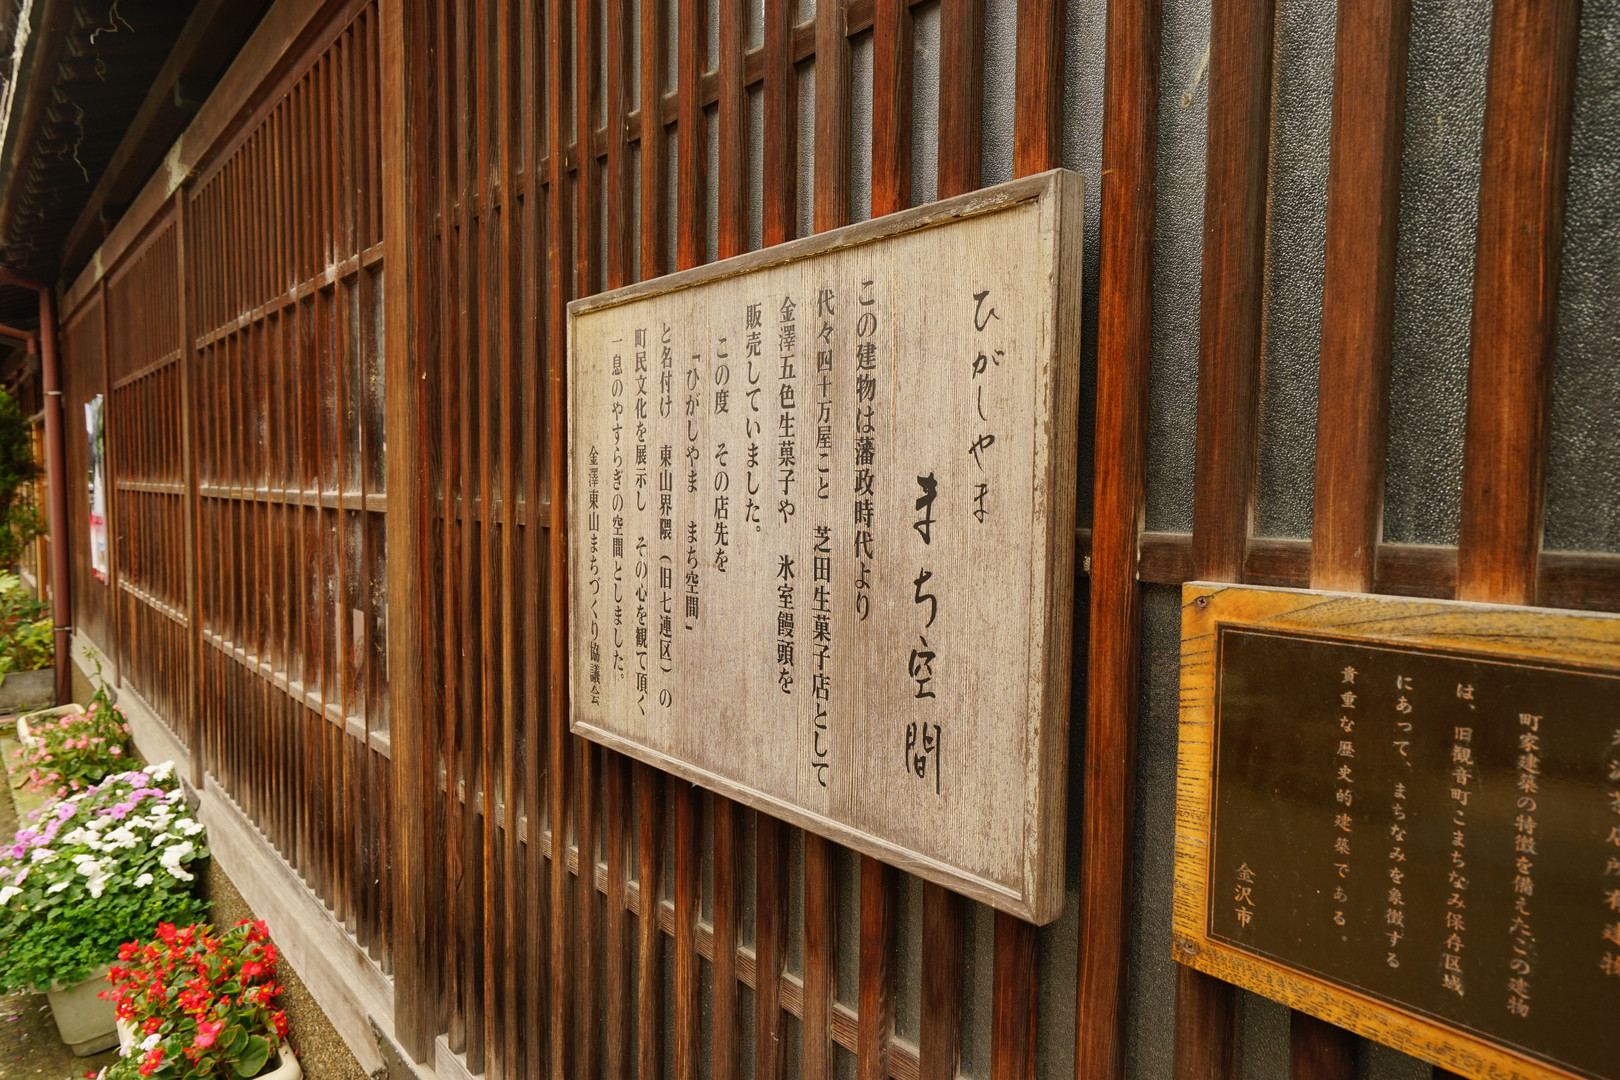 ひがしやま
まち空間
この建物は藩政時代より
代々四十万屋こと　芝田生菓子店として
金澤五色生菓子や　氷室饅頭を
販売していました。
この度　その店先を
「ひがしやま　まち空間」
と名付け　東山界隈（旧七連区）の
町民文化を展示し　その心を観て頂く
一息のやすらぎの空間としました。
金澤東山まちづくり協議会
町家建築の特徴を備えたこの建物
は、旧観音町こまちなみ保存区域
にあって、まちなみを象徴する
貴重な歴史的建築である。
金沢市